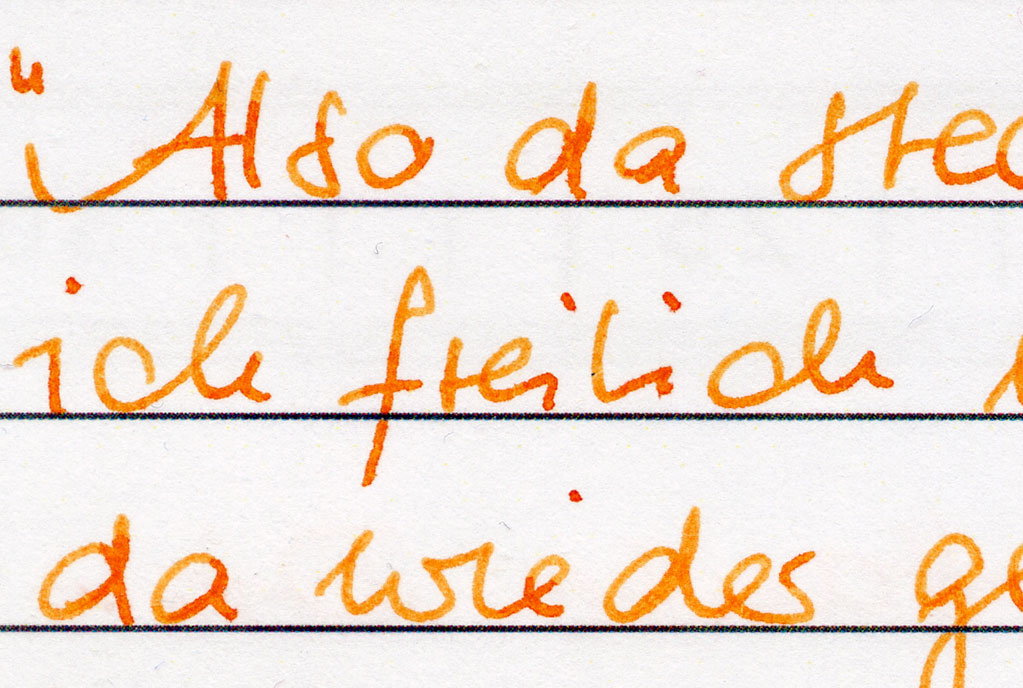 "Also da stec
ich freilich
da wieder ge